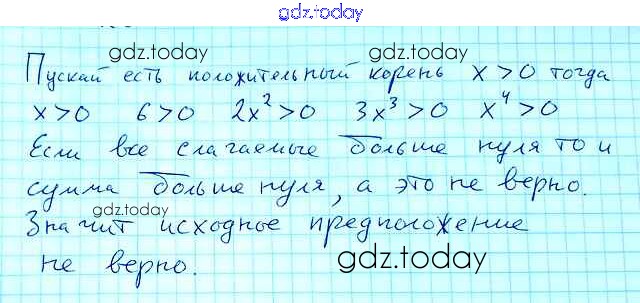 gdz.today
gdz.today gdz.today
Пускай есть положительный корень x > 0 тогда
x > 0 6 > 0 2x² > 0 3x³ > 0 x⁴ > 0
Если все слагаемые больше нуля то и
сумма больше нуля, а это не верно.
gdz.today
Значит исходное предположение
не верно.
gdz.today